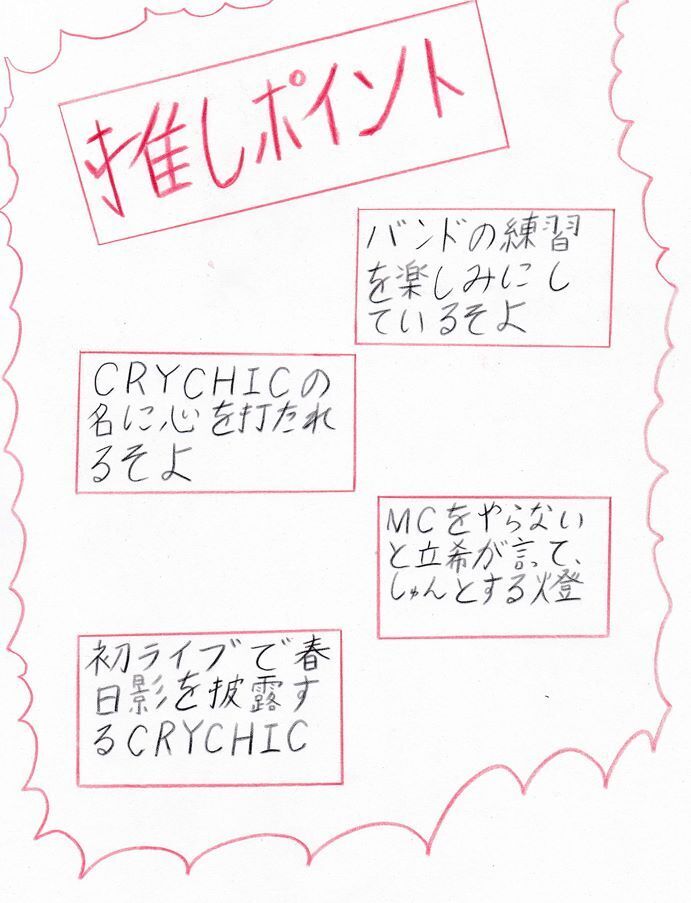 推しポイント
バンドの練習
を楽しみにし
ているそよ
CRYCHICの
名に心を打たれ
るそよ
MCをやらない
と立希が言って、
しゅんとする燈
初ライブで春
日影を披露す
るCRYCHIC